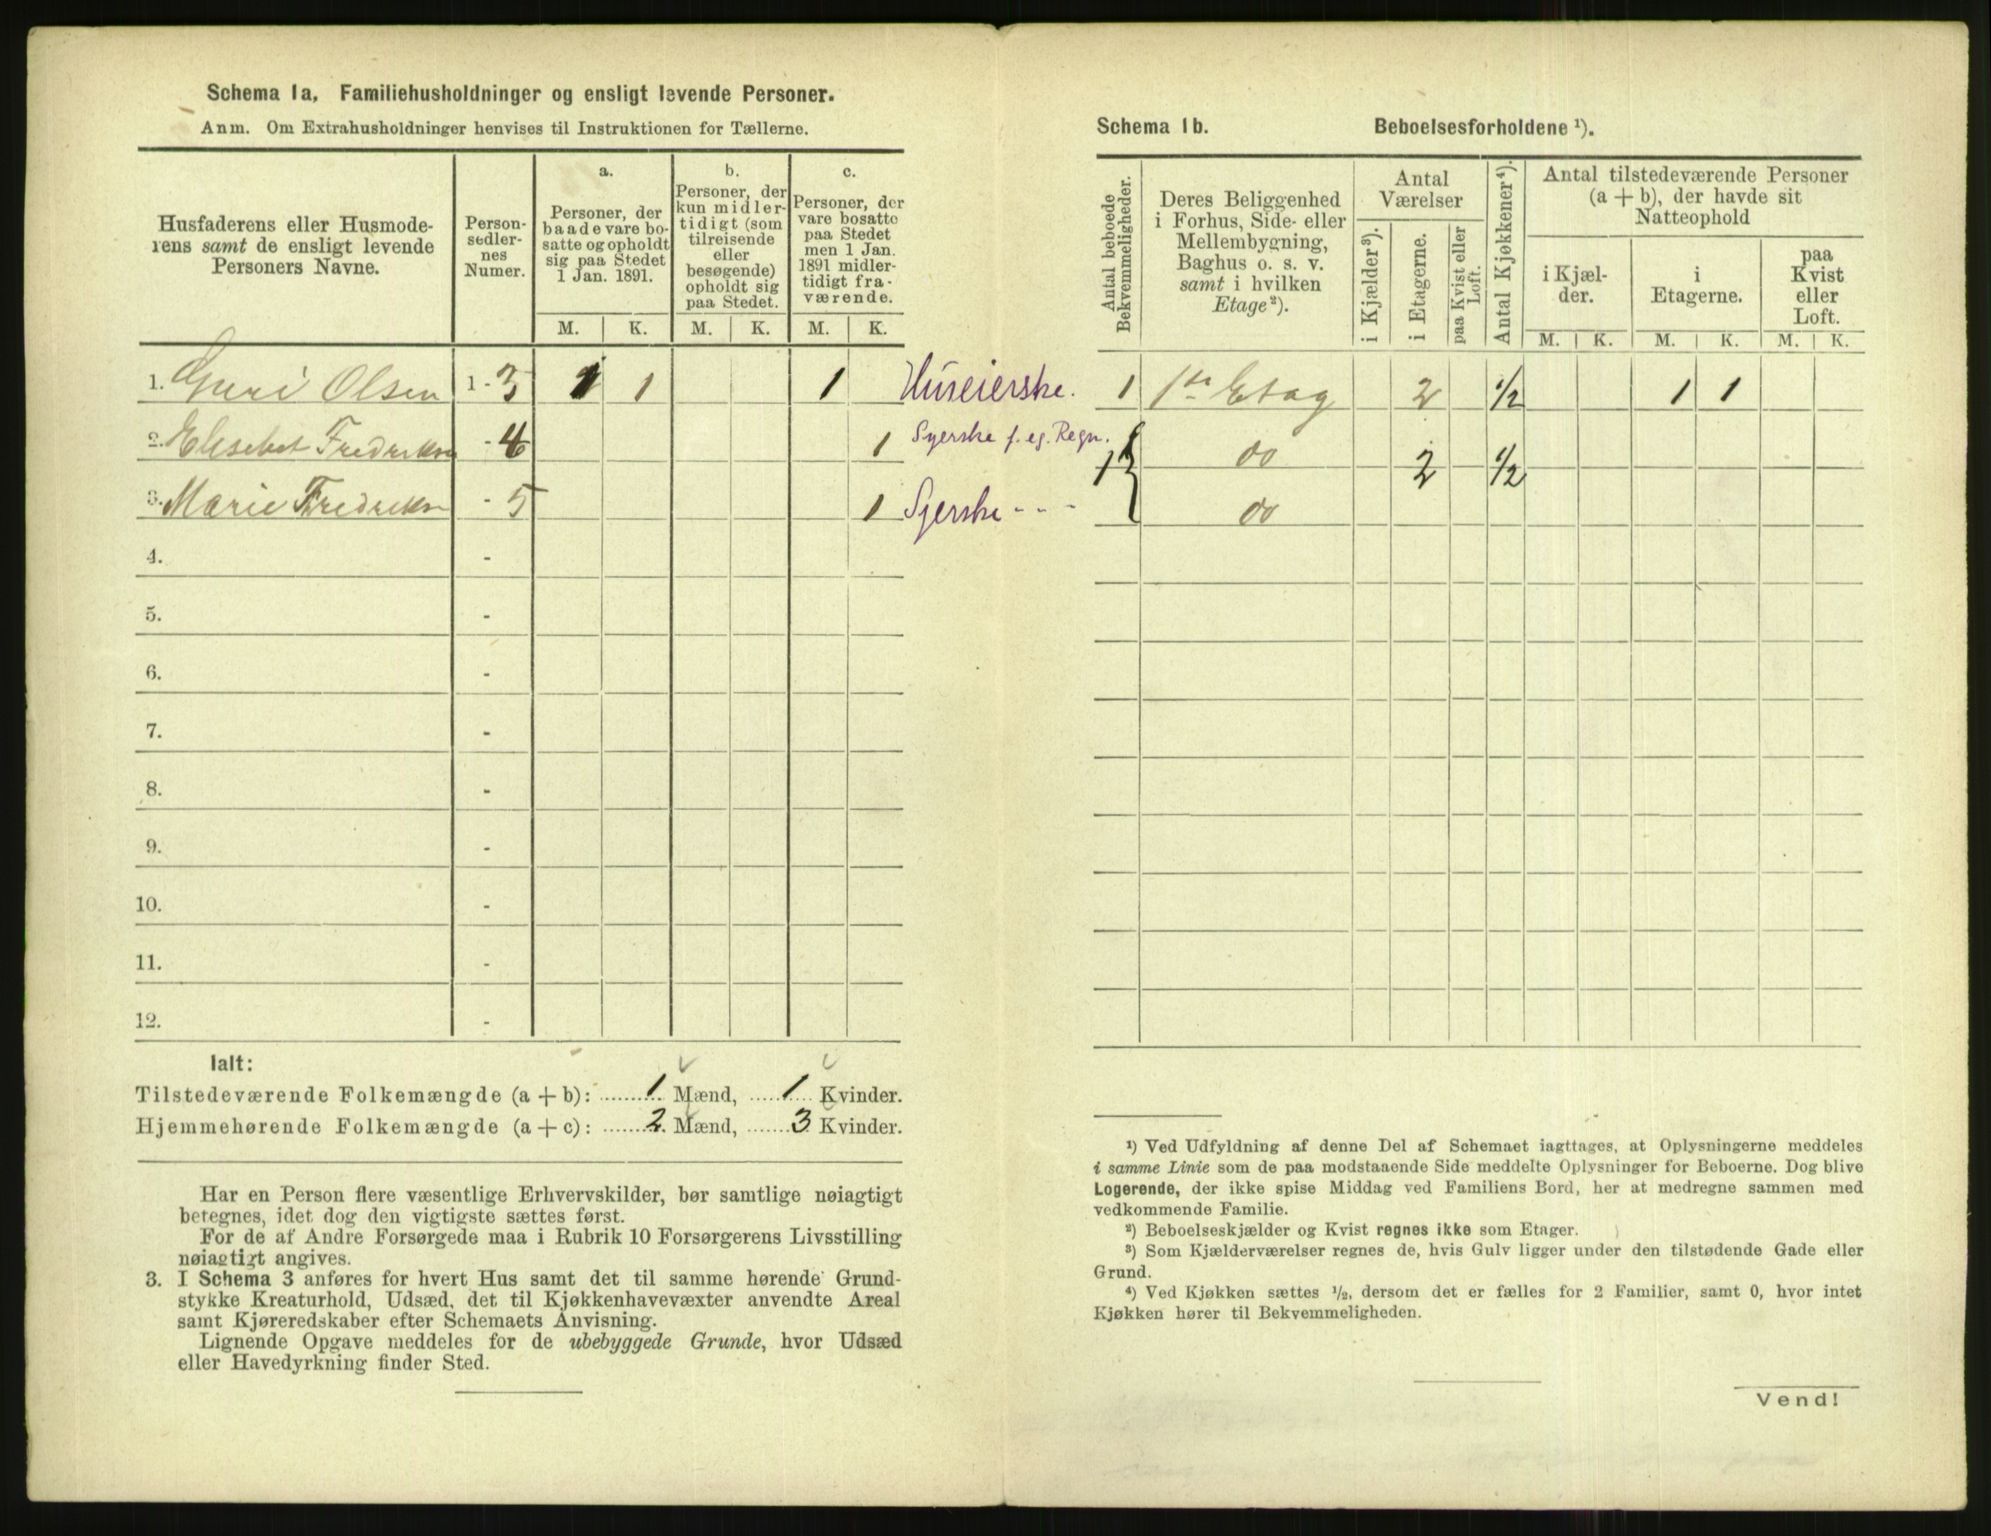 Schema 1a, Familiehusholdninger og ensligt levende Personer.
Anm. Om Extrahusholdninger henvises til Instruktionen for Tællerne.
Husfaderens eller Husmode-
rens samt de ensligt levende
Personers Navne.
Person-
sedler-
nes
Numer.
a.
Personer, der
baade vare bo-
satte og opholdt
sig paa Stedet
1 Jan. 1891.
b.
Personer, der
kun midler-
tidigt (som
tilreisende
eller
besøgende)
opholdt sig
paa Stedet.
c.
Personer, der
vare bosatte
paa Stedet
men 1 Jan.
1891 midler-
tidigt fra-
værende.
M. K. M. K. M. K.
1. Guri Olsen 1 - 3 1 1 1 Huseierske.
2. Elisebet Fredriksn - 4 1 Syerske f. eg. Regn.
3. Marie Fredriksn - 5 1 Syerske - - -
4. -
5. -
6. -
7. -
8. -
9. -
10. -
11. -
12. -
Ialt:
Tilstedeværende Folkemængde (a + b): 1 Mænd, 1 Kvinder.
Hjemmehørende Folkemængde (a + c): 2 Mænd, 3 Kvinder.
Har en Person flere væsentlige Erhvervskilder, bør samtlige nøiagtigt
betegnes, idet dog den vigtigste sættes først.
For de af Andre Forsørgede maa i Rubrik 10 Forsørgerens Livsstilling
nøiagtigt angives.
3. I Schema 3 anføres for hvert Hus samt det til samme hørende Grund-
stykke Kreaturhold, Udsæd, det til Kjøkkenhavevæxter anvendte Areal
samt Kjøreredskaber efter Schemaets Anvisning.
Lignende Opgave meddeles for de ubebyggede Grunde, hvor Udsæd
eller Havedyrkning finder Sted.
Schema 1b. Beboelsesforholdene ¹).
Antal beboede
Bekvemmeligheder.
Deres Beliggenhed
i Forhus, Side- eller
Mellembygning,
Baghus o. s. v.
samt i hvilken
Etage²).
Antal
Værelser
i Kjælder³).
i Etagerne.
paa Kvist eller
Loft.
Antal Kjøkkener⁴).
Antal tilstedeværende Personer
(a + b), der havde sit
Natteophold
i Kjæl-
der.
i
Etagerne.
paa
Kvist
eller
Loft.
M. K. M. K. M. K.
1 1ste Etag 2 1/2 1 1
1 do 2 1/2
do
¹) Ved Udfyldning af denne Del af Schemaet iagttages, at Oplysningerne meddeles
i samme Linie som de paa modstaaende Side meddelte Oplysninger for Beboerne. Dog blive
Logerende, der ikke spise Middag ved Familiens Bord, her at medregne sammen med
vedkommende Familie.
²) Beboelseskjælder og Kvist regnes ikke som Etager.
³) Som Kjælderværelser regnes de, hvis Gulv ligger under den tilstødende Gade eller
Grund.
⁴) Ved Kjøkken sættes ½, dersom det er fælles for 2 Familier, samt 0, hvor intet
Kjøkken hører til Bekvemmeligheden.
Vend!